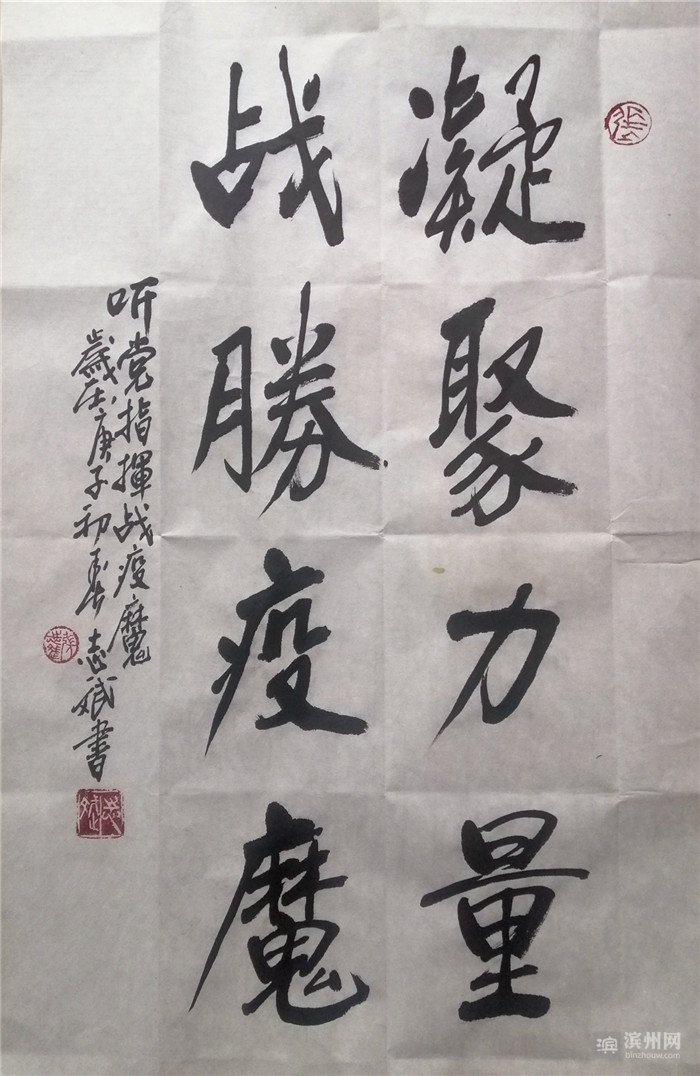 凝聚力量
战勝疫魔
听党指揮战疫魔
歲在庚子初春志斌書
滨 滨州网
binzhouw.com